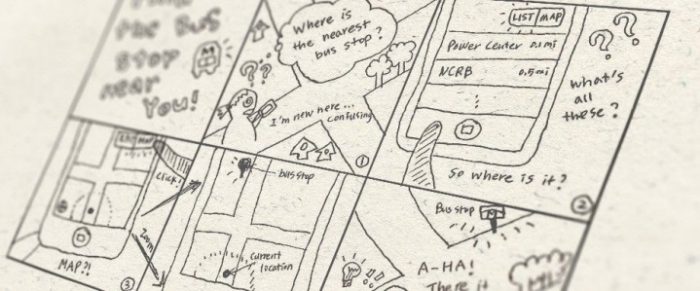 the Bus
stop
near
You!
Where is
the nearest
bus stop?
??
I'm new here...
confusing
1
LIST MAP
Power Center 0.1mi
NCRB 0.5mi
??
what's
all
these?
So where is it?
2
MAP
click!
zoom
MAP?!
3
bus stop
current
location
Bus stop
A-HA!
There it